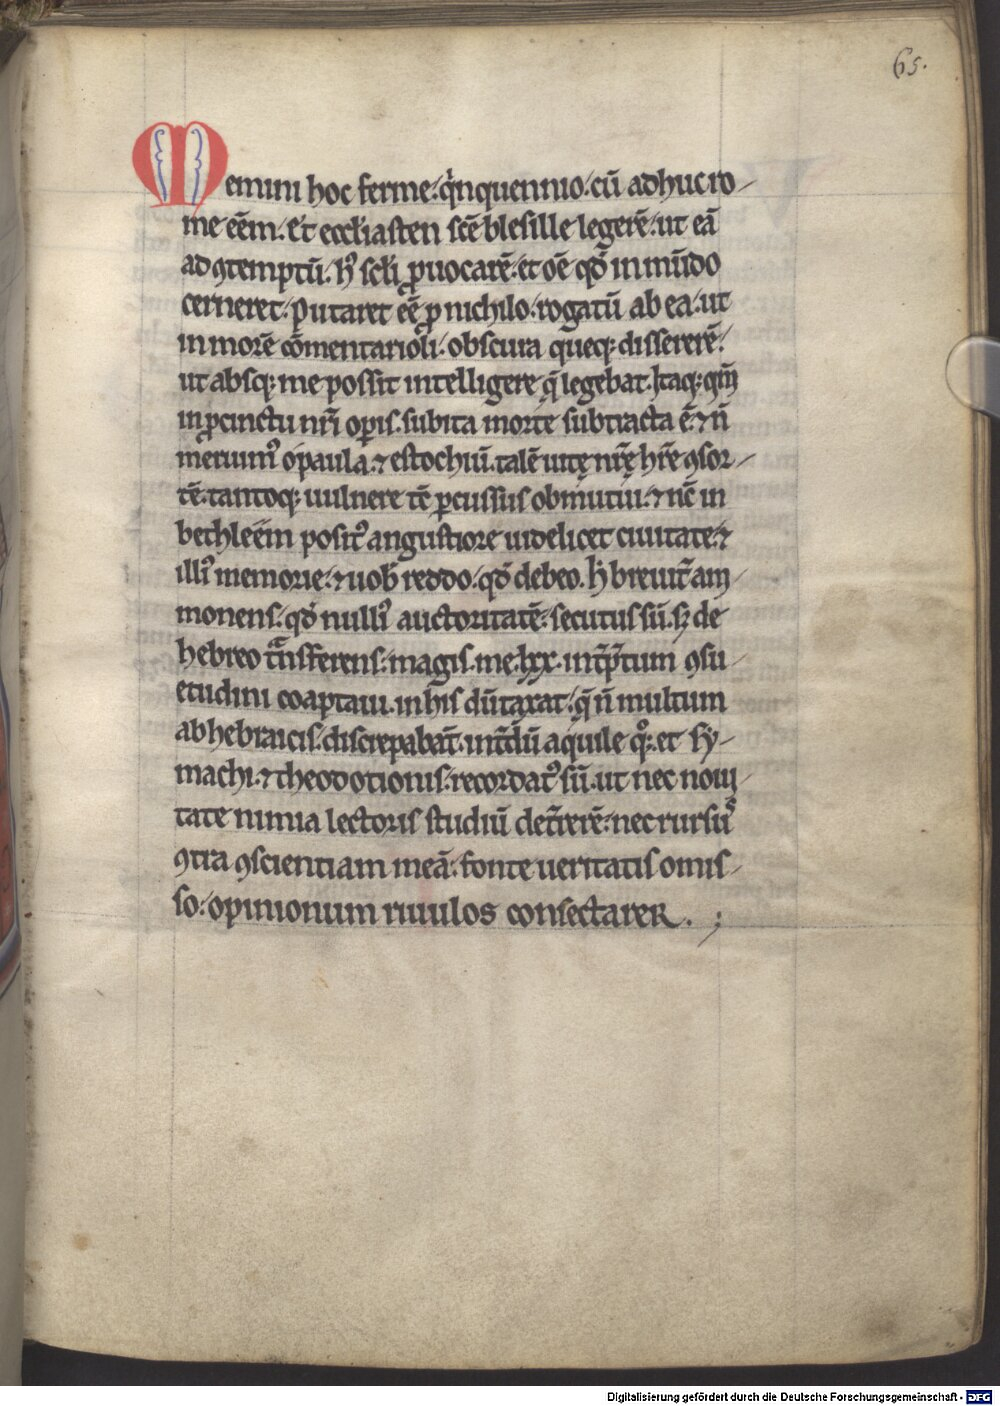 65.
Memini hoc ferme. q̇nquennio. cū adhuc ro-
me eēm. et eccl̄iasten scē blesille legerē. ut eā
ad ꝯtemptū. hꝰ scl̄i ꝓuocarē. et oē qd̄ in mūdo
cerneret. putaret eē ꝓ nichilo. rogatū ab ea. ut
in morē cōmentarioli. obscura queq; dissererē.
ut absq; me possit intelligere q̄ legebat. Itaq; qm̄
in ꝓcinctu nr̄i oꝑis. subita morte subtracta ē. ⁊ n̄
meruimꝰ o paula. ⁊ estochiū. talē uitę nr̄ę hr̄e ꝯsor-
tē. tantoq; uulnere tē ꝑcussus obmutui. ⁊ nc̄ in
bethleēm positꝰ angustiore uidelicet ciuitate. ⁊
illiꝰ memorie. ⁊ uob̄ reddo. qd̄ debeo. h̄ breuit̄ am-
monens. qd̄ nulliꝰ auctoritatē. secutus sū. sꝫ de
hebreo t̄nsferens. magis. me. lxx. int̄p̄tum ꝯsu-
etudini coaptaui. in his dūtaxat. q̄ n̄ multum
ab hebraicis. discrepabāt. int̄dū aquile qͦ;. et sy-
machi. ⁊ theodotionis. recordatꝰ sū. ut nec noui-
tate nimia lectoris studiū det̄rerē. nec rursūꝰ
ꝯtra ꝯscientiam meā. fonte ueritatis omis-
so. opinionum riuulos consectareR. ;
Digitalisierung gefördert durch die Deutsche Forschungsgemeinschaft - DFG